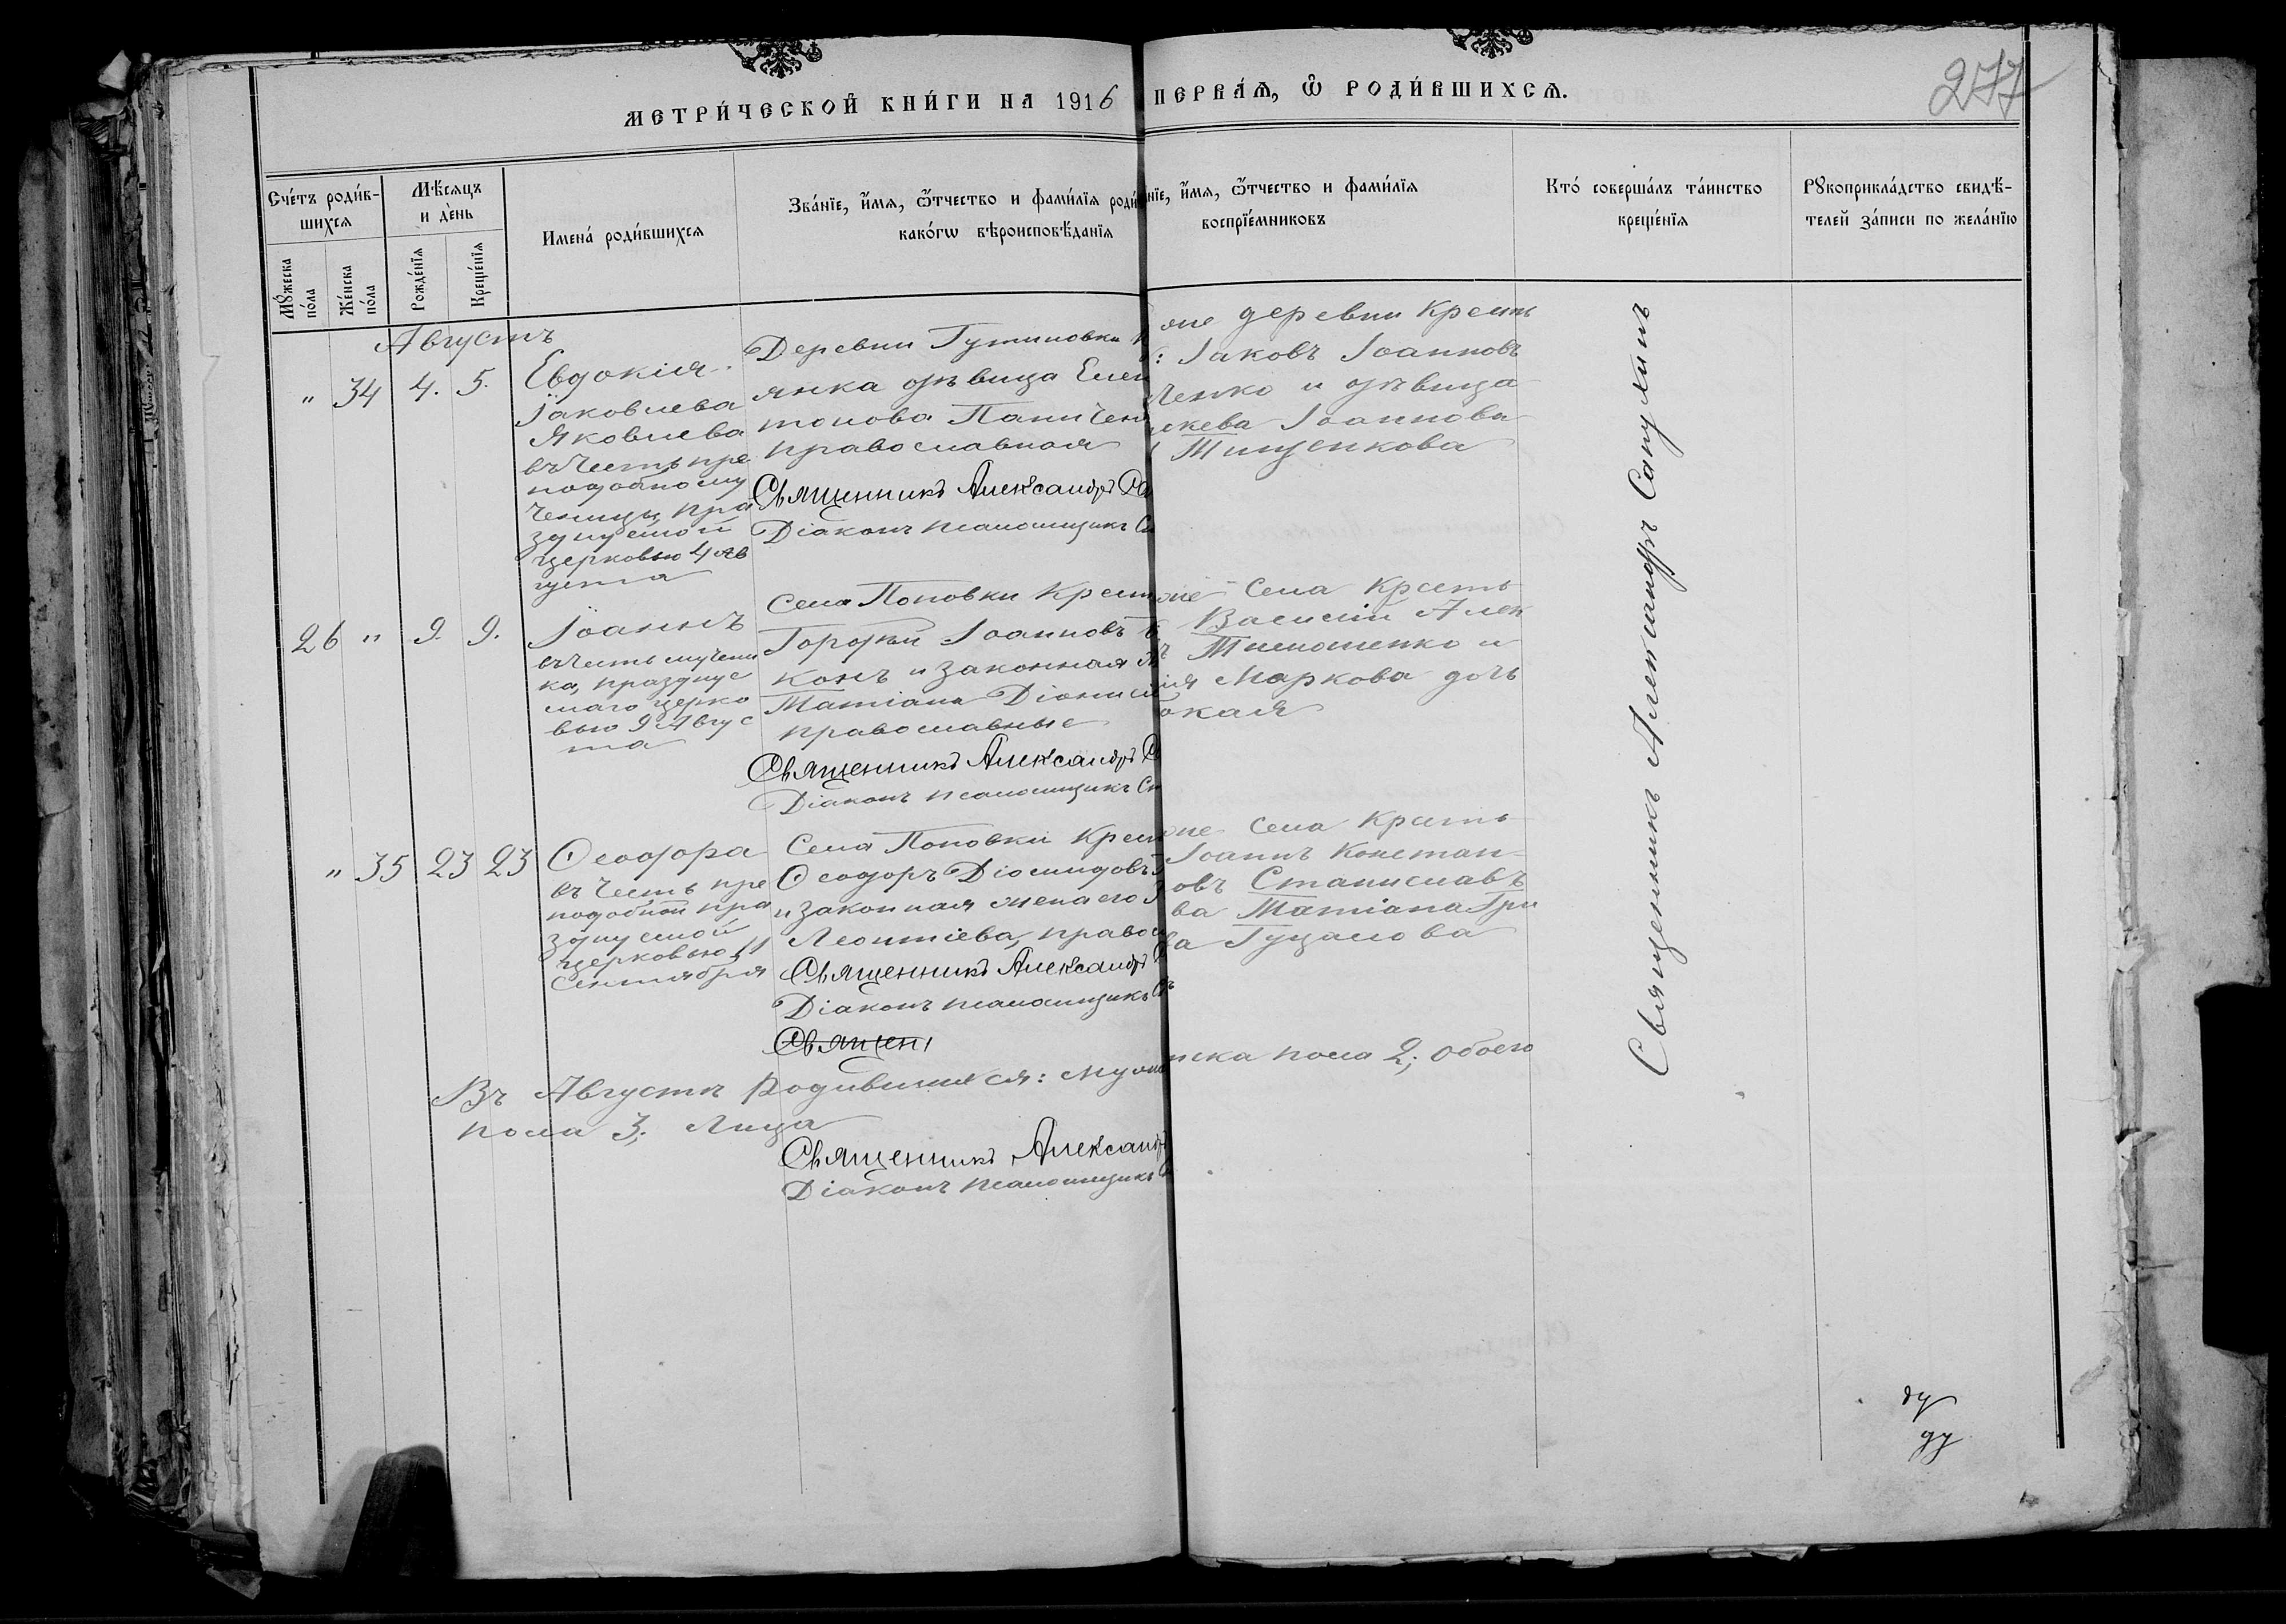 277
МЕТРИ́ЧЕСКОЙ КНИ́ГИ НА 1916
ПЕРВА́Ѧ, Ѡ РОДИ́ВШИХСѦ.
Сче́тъ роди́в-
шихсѧ
Мꙋ́жеска
по́ла
Же́нска
по́ла
Мѣ́сѧцъ
и де́нь
Рожде́нїѧ
Креще́нїѧ
Имена́ роди́вшихсѧ
Зва́нїе, и҆́мѧ, ѻ҆́тчество и фами́лїѧ роди
како́гѡ вѣроисповѣ́данїѧ
нїе, и҆́мѧ, ѻ҆́тчество и фами́лїѧ
воспрїе́мниковъ
Кто́ соверша́лъ та́инство
креще́нїѧ
Рꙋкоприкла́дство свидѣ́-
телей за́писи по жела́нїю
Августъ
" 34 4. 5.
Евдокія
Іаковлева
Яковлева
въ честь пре
подобному
ченицы, пра
зднуемой
церковью 4 Ав
густа
Деревни
янка дѣвица Елен
топова Паничен
православная
Священникъ Александръ
Діаконъ псаломщикъ
оне деревни Кресть
: Іаковъ Іоанновъ
ченко и дѣвица
Іоаннова
Тищенкова
26 " 9. 9.
Іоаннъ
въ честь мучени
ка, праздну е
маго церко
вью 9 Авгус
та
Села Поповки Крест
Гордѣй Іоанновъ
конъ и законная
Татіана Діониси
православные
Священникъ Александръ
Діаконъ псаломщикъ
оне Села Кресть
Василій Алек
Тимошенко и
ія Маркова дочь
окая
" 35 23 23
Ѳеодора
въ честь пре
подобной пра
зднуемой
церковью 11
Сентября
Села Поповки Крест
Ѳеодоръ Діомидовъ
и законная жена его
Леонтіева, правос
Священникъ Александръ
Діаконъ псаломщикъ
Священ
оне Села Кресть
Іоаннъ Констан
овъ Станиславъ
ва Татіана Гри
ва Гуцалова
Въ Августѣ Родившихся: муж
нска пола 2; обоего
пола 3. Лица
Священникъ Александръ
Діаконъ псаломщикъ
Священникъ Александръ